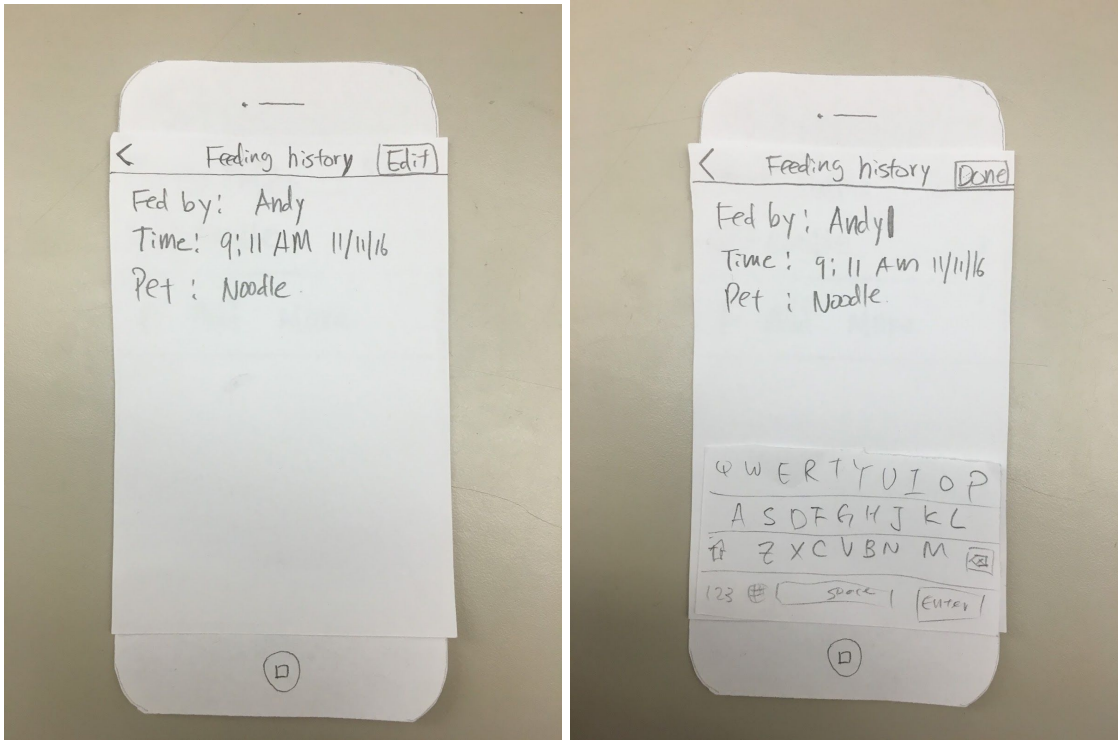 < Feeding history Edit
Fed by: Andy
Time: 9:11 AM 11/11/16
Pet: Noodle
< Feeding history Done
Fed by: Andy
Time: 9:11 Am 11/11/16
Pet: Noodle
Q W E R T Y U I O P
A S D F G H J K L
Z X C V B N M
123 space Enter